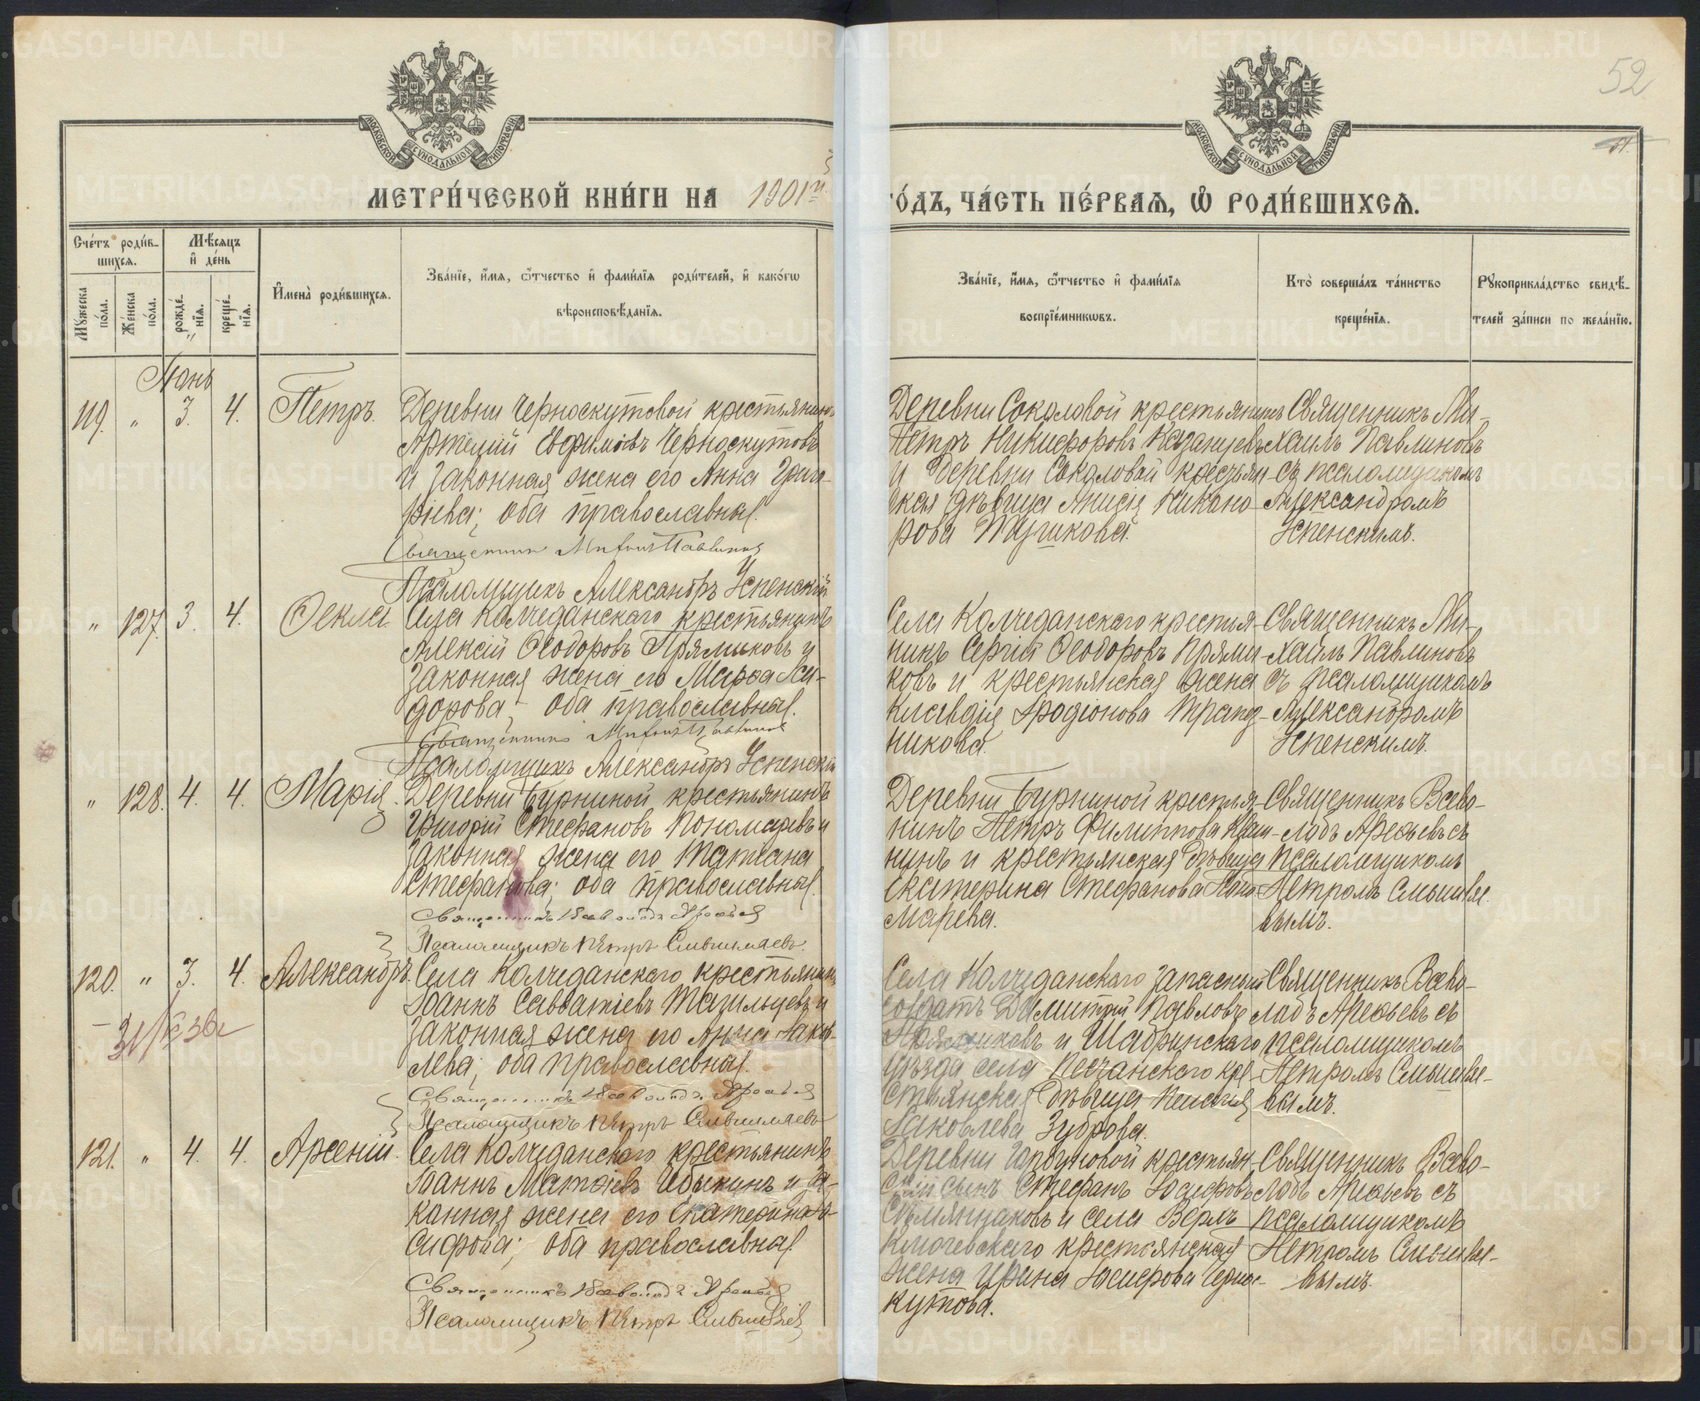 52
МЕТРИ́ЧЕСКОЙ КНИ́ГИ НА 1901й
ГО́ДЪ, ЧА́СТЬ ПЕ́РВАЯ, Ѡ҆ РОДИ́ВШИХСЯ.
Сче́тъ роди́в-
шихся.
Мѣ́сяцъ
и҆ де́нь
Мꙋ́жеска по́ла.
Же́нска по́ла.
рожде́нїя.
креще́нїя.
И҆мена̀ роди́вшихся.
Зва́нїе, и҆́мя, ѻ҆́тчество и҆ фами́лїя роди́телей, и҆ како́гѡ
вѣроисповѣ́данїя.
Зва́нїе, и҆́мя, ѻ҆́тчество и҆ фами́лїя
воспрїе́мникѡвъ.
Кто̀ соверша́лъ та́инство
креще́нїя.
Рꙋкоприкла́дство свидѣ́-
телей за́писи по жела́нїю.
119. " 3. 4. Петръ.
Деревни Черноскутовой крестьянинъ
Евфимовъ Черноскутовъ
и законная жена его Анна Григо-
рьева; оба православные.
Священникъ Михаилъ Павлинов
Псаломщикъ Александръ Успенскій
Деревни Соколовой крестьянинъ
Петръ Никифоровъ Казанцевъ
и деревни Соколовой крестьян-
ская дѣвица Анисія Никано-
рова
Священникъ Ми-
хаилъ Павлиновъ
съ псаломщикомъ
Александромъ
Успенскимъ.
" 127. 3. 4. Ѳекла.
Села Колчеданскаго крестьянинъ
Алексій Ѳеодоровъ Прямиковъ и
законная жена его Марѳа Иси-
дорова, оба православные.
Священникъ Михаилъ Павлинов
Псаломщикъ Александръ Успенскій
Села Колчеданскаго крестья-
нинъ Сергій Ѳеодоровъ Прями-
ковъ и крестьянская жена
Клавдія Иродіонова
никова.
Священникъ Ми-
хаилъ Павлиновъ
съ псаломщикомъ
Александромъ
Успенскимъ.
" 128. 4. 4. Марія.
Деревни Бурниной крестьянинъ
Григорій Стефановъ Пономаревъ и
законная жена его Татіана
Стефанова; оба православные.
Священникъ Всеволодъ Арефьев
Псаломщикъ Петръ
Деревни Бурниной крестья-
нинъ Петръ Филиппова
и крестьянская дѣвица
Екатерина Стефанова Поно-
марева.
Священникъ Всево-
лодъ Арефьевъ съ
псаломщикомъ
Петромъ
120. " 3. 4. Александръ.
Села Колчеданскаго крестьянинъ
Іоаннъ Савватіевъ Тагильцевъ и
законная жена его Анна Іаков-
лева; оба православные.
Священникъ Всеволодъ Арефьев
Псаломщикъ Петръ
Села Колчеданскаго запасный
солдатъ Димитрій Павловъ
и Шадринскаго
уѣзда села Песчанскаго кре-
стьянская дѣвица
Іаковлева Зуброва.
Священникъ Всево-
лодъ Арефьевъ съ
псаломщикомъ
Петромъ
121. " 4. 4. Арсеній.
Села Колчеданскаго крестьянинъ
Іоаннъ Матѳіевъ и за-
конная жена его Екатерина Іо-
сифова; оба православные.
Священникъ Всеволодъ Арефьев
Псаломщикъ Петръ
Деревни крестьян-
скій сынъ Стефанъ Іосифовъ
и села Верхъ-
Ключевскаго крестьянская
жена Ирина Іосифова Черно-
кутова.
Священникъ Всево-
лодъ Арефьевъ съ
псаломщикомъ
Петромъ
METRIKI.GASO-URAL.RU